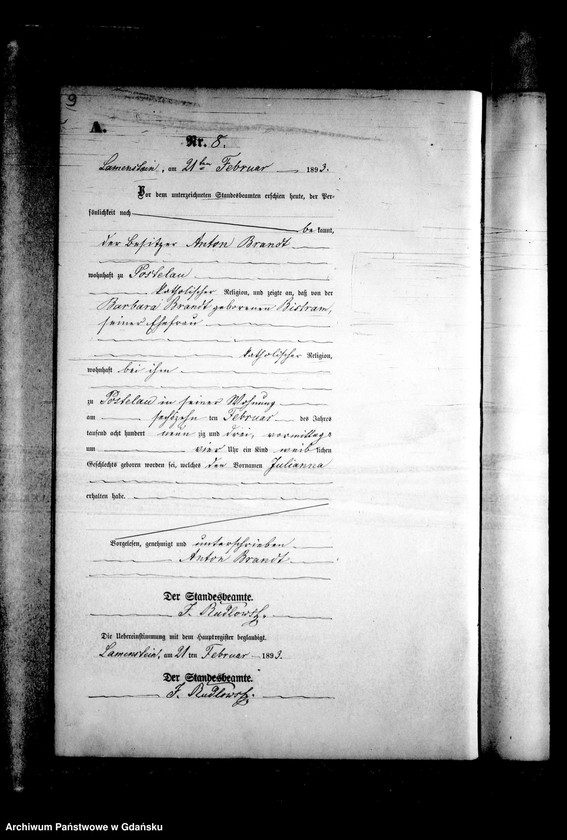 9
A.
Nr. 8.
Lamenstein, am 21ten Februar 1893.
Vor dem unterzeichneten Standesbeamten erschien heute, der Per-
sönlichkeit nach
bekannt,
der Besitzer Anton Brandt
wohnhaft zu Postelau
katholischer Religion, und zeigte an, daß von der
Barbara Brandt geborenen Bistram,
seiner Ehefrau
katholischer Religion,
wohnhaft bei ihm
zu Postelau in seiner Wohnung
am sechszehn ten Februar des Jahres
tausend acht hundert neun zig und drei, vormittags
um vier Uhr ein Kind weib lichen
Geschlechts geboren worden sei, welches den Vornamen Julianna
erhalten habe.
Vorgelesen, genehmigt und unterschrieben
Anton Brandt
Der Standesbeamte.
Die Uebereinstimmung mit dem Hauptregister beglaubigt.
Lamenstein, am 21 ten Februar 1893.
Der Standesbeamte.
Archiwum Państwowe w Gdańsku